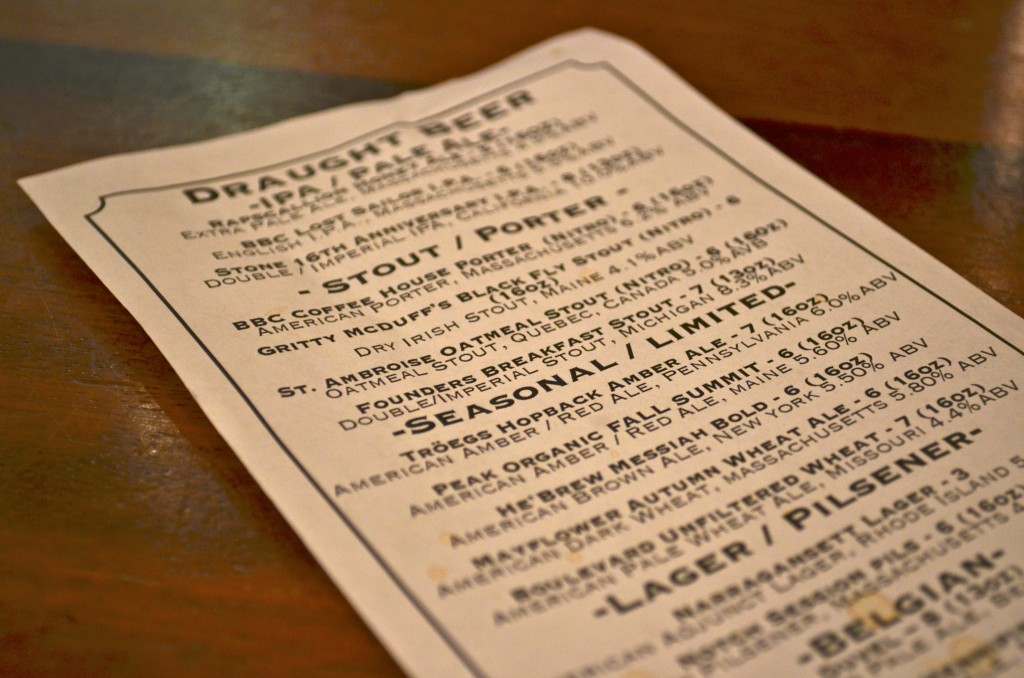 DRAUGHT BEER
-IPA / PALE ALE-
BBC LOST SAILOR I.P.A. - 6 (16OZ)
ENGLISH I.P.A., MASSACHUSETTS
STONE 16TH ANNIVERSARY I.P.A. -
DOUBLE / IMPERIAL IPA,
- STOUT / PORTER -
BBC COFFEE HOUSE PORTER (NITRO) - 6 (16OZ)
AMERICAN PORTER, MASSACHUSETTS 6.2% ABV
GRITTY MCDUFF'S BLACK FLY STOUT (NITRO) - 6
(16OZ)
DRY IRISH STOUT, MAINE 4.1% ABV
ST. AMBROISE OATMEAL STOUT (NITRO) - 6 (16OZ)
OATMEAL STOUT, QUEBEC, CANADA 5.0%AVB
FOUNDERS BREAKFAST STOUT - 7 (13OZ)
DOUBLE/IMPERIAL STOUT, MICHIGAN 8.3% ABV
-SEASONAL / LIMITED-
TRÖEGS HOPBACK AMBER ALE - 7 (16OZ)
AMERICAN AMBER / RED ALE, PENNSYLVANIA 6.0% ABV
PEAK ORGANIC FALL SUMMIT - 6 (16OZ)
AMERICAN AMBER / RED ALE, MAINE 5.60% ABV
HE'BREW MESSIAH BOLD - 6 (16OZ)
AMERICAN BROWN ALE, NEW YORK 5.50% ABV
MAYFLOWER AUTUMN WHEAT ALE - 6 (16OZ)
AMERICAN DARK WHEAT, MASSACHUSETTS 5.80% ABV
BOULEVARD UNFILTERED WHEAT - 7 (16OZ)
AMERICAN PALE WHEAT ALE, MISSOURI 4.4% ABV
-LAGER / PILSENER-
NARRAGANSETT LAGER - 3
AMERICAN ADJUNCT LAGER, RHODE ISLAND 5
SESSION PILS - 6 (16OZ)
PILSENER, MASSACHUSETTS
-BELGIAN-
(13OZ)
PALE ALE,